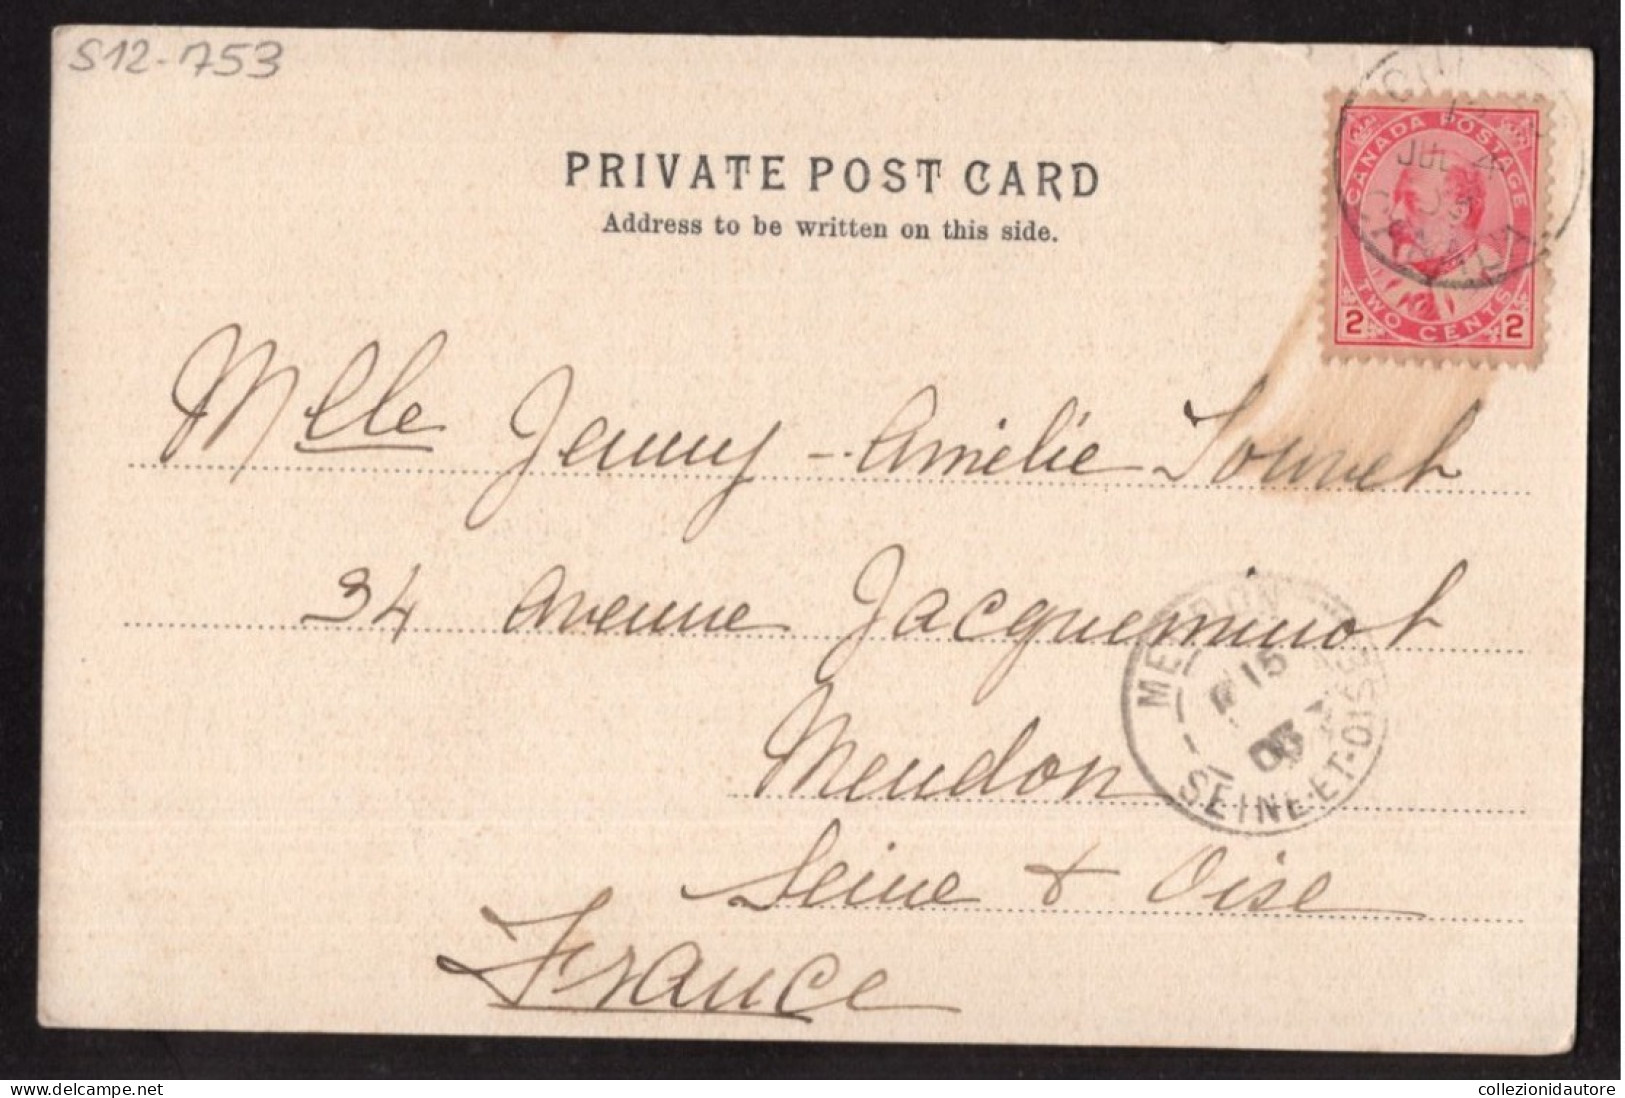 S12-753
PRIVATE POST CARD
Address to be written on this side.
CANADA POSTAGE
JUL 4
CANADA
TWO CENTS
2 2
Mlle Jenny-Amélie Jouvet
34 Avenue Jacqueminot
Meudon
MEUDON
15
SEINE-ET-OISE
Seine & Oise
France
www.delcampe.net
collezionidautore